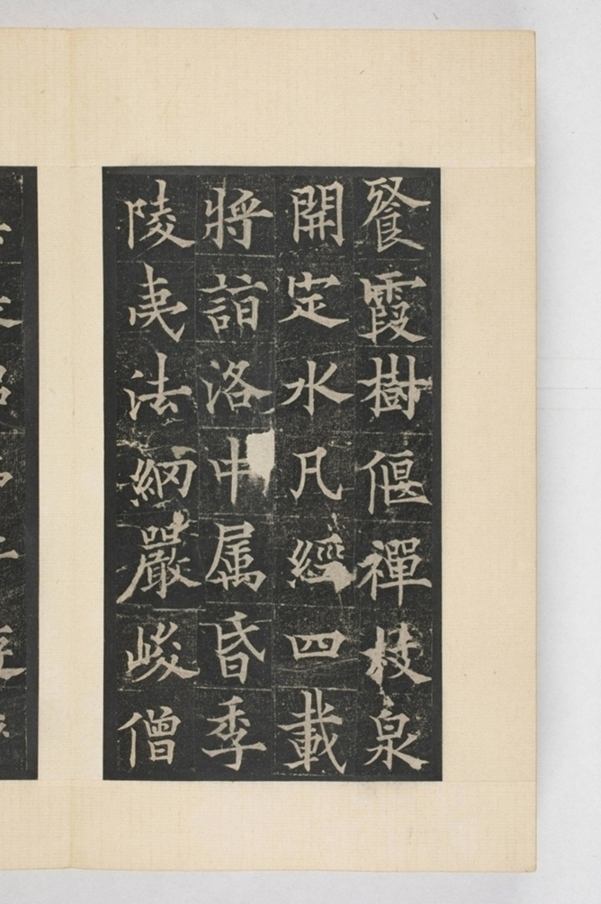 餐霞樹偃禪枝泉
開定水凡經四載
將詣洛中属昏季
陵夷法網嚴峻僧